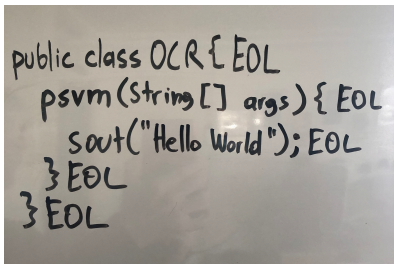 public class OCR{ EOL
psvm(String[] args){ EOL
sout("Hello World"); EOL
} EOL
} EOL